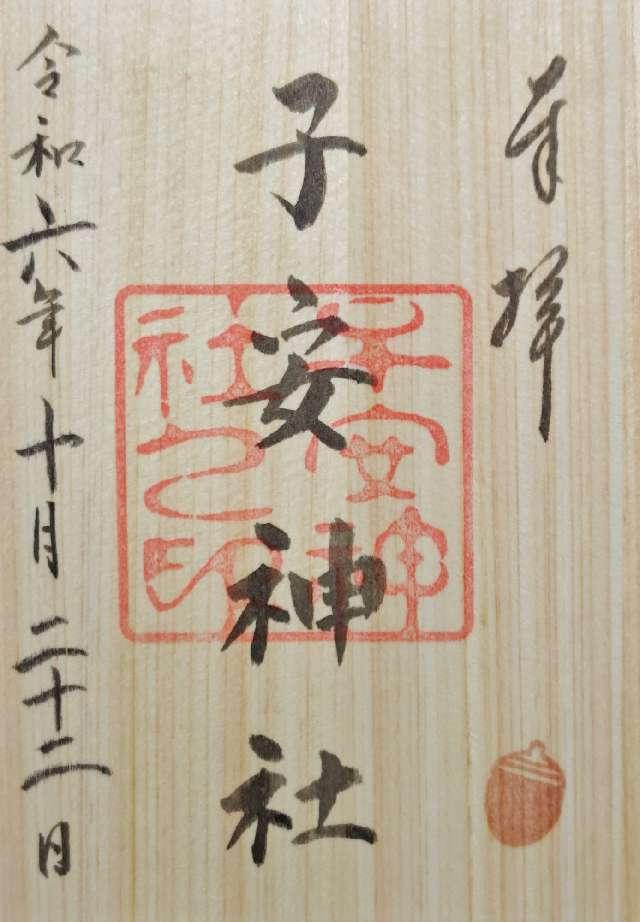 奉拝
子安神社
子安神社之印
令和六年十月二十二日